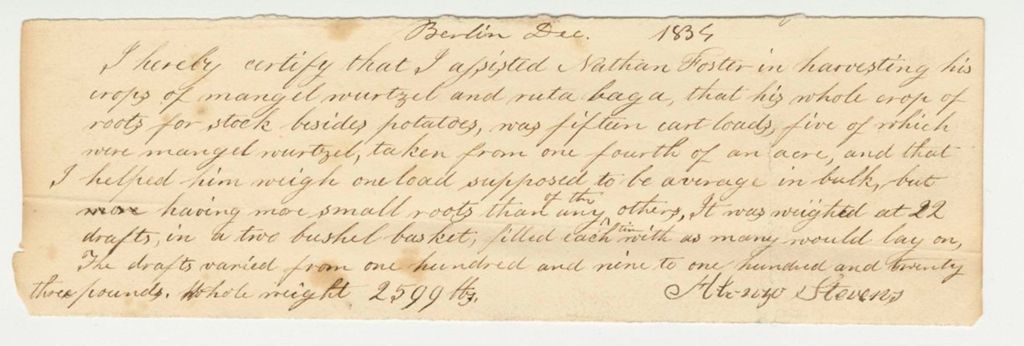 Berlin Dec. 1834
I hereby certify that I assisted Nathan Foster in harvesting his
crops of mangel wurtzel and ruta baga, that his whole crop of
roots for stock besides potatoes, was fifteen cart loads, five of which
were mangel wurtzel, taken from one fourth of an acre, and that
I helped him weigh one load supposed to be average in bulk, but
more having more small roots than any of the others. It was weighed at 22
drafts, in a two bushel basket, filled each time with as many would lay on,
The drafts varied from one hundred and nine to one hundred and twenty
three pounds. Whole weight 2599 lbs. Alonzo Stevens